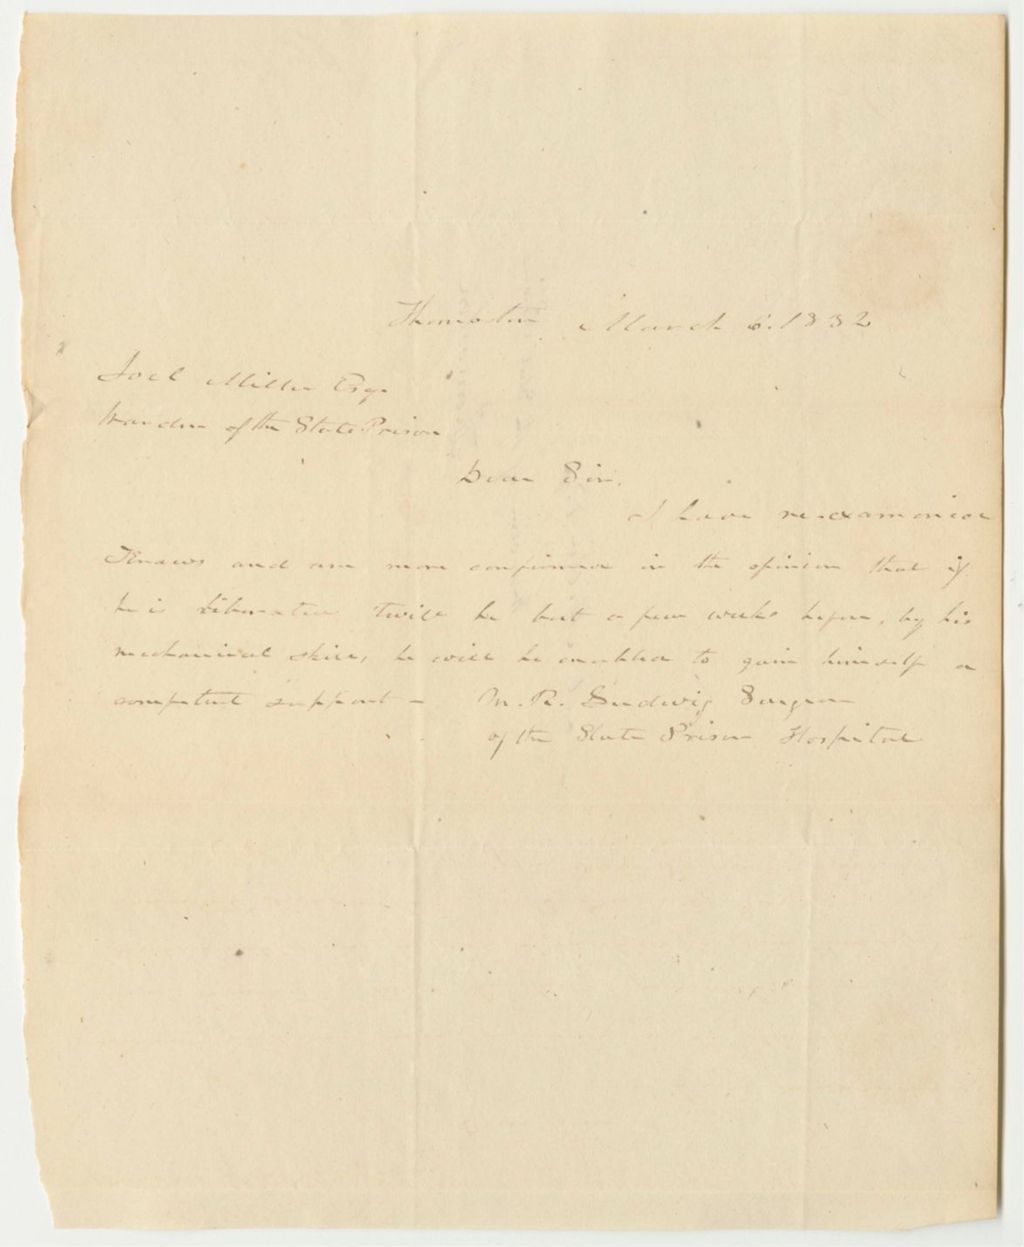 Thomaston March 6. 1832
Joel Miller Esqr
Warden of the State Prison
Dear Sir,
I have re-examined
and am more confirmed in the opinion that if
he is liberated twill be but a few weeks before, by his
mechanical skill, he will be enabled to gain himself a
competent support -
M. R. Ludwig Surgeon
of the State Prison Hospital